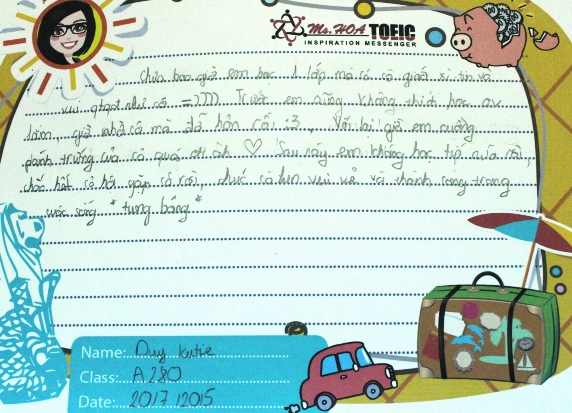 Ms. HOA TOEIC
INSPIRATION MESSENGER
Chưa bao giờ em học 1 lớp mà có cô giáo xì tin và
vui như cô =)))) Trước em cũng không thích học av
lắm, giờ nhờ cô mà đã hơn rồi :3. Với lại giờ em cuồng
cô quá ♡ Sau này em không học tiếp nữa rồi,
chắc hết cơ hội gặp cô rồi, chúc cô luôn vui vẻ và thành công trong
cuộc sống *tung bông*
Name: Duy kutie
Class: A280
Date: 2017 12015